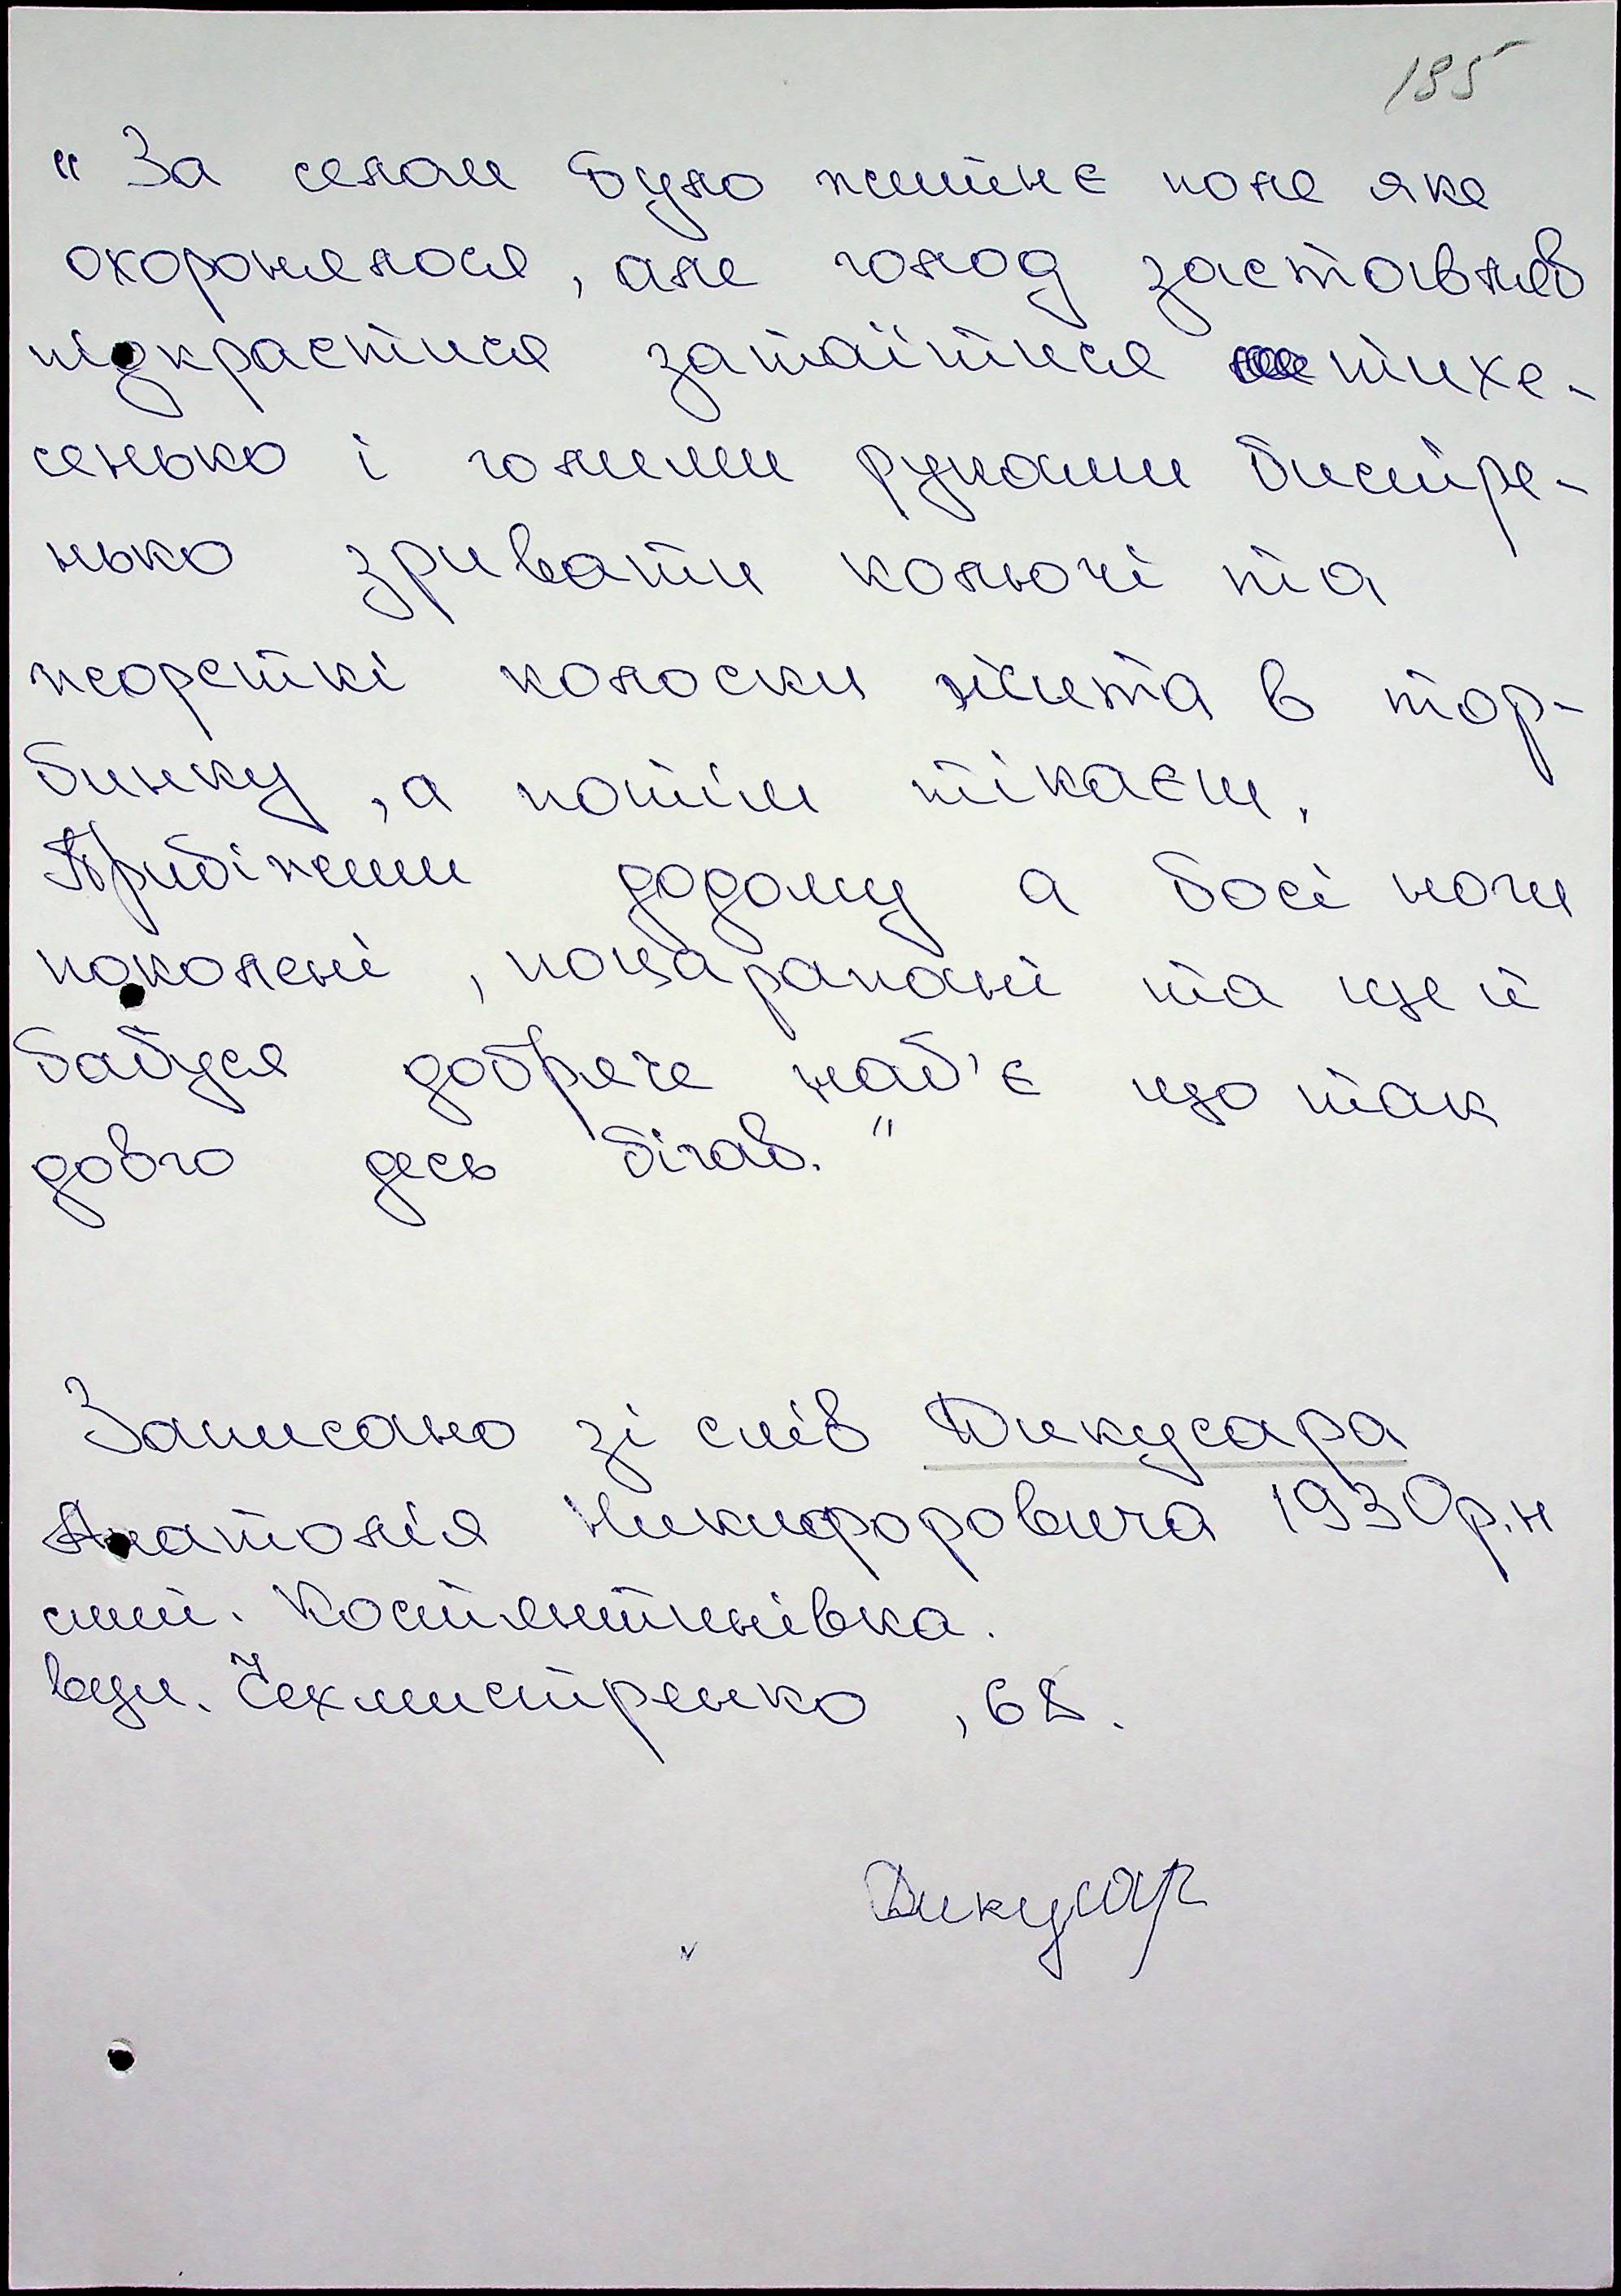 195
" За селом було житнє поле яке
охоронялося, але голод заставляв
підкрастися затаїтися тихе-
сенько і голими руками бистре-
нько зривати колючі та
жорсткі колоски жита в тор-
бинку, а потім тікаєш.
Прибіжиш додому а босі ноги
поколені, поцарапані та ще й
бабуся добряче наб'є що так
довго десь бігав."
Записано зі слів Дикусара
Анатолія Никифоровича 1930р.н
смт. Костянтинівка.
вул. Чехмистренко, 68.
Дикусар